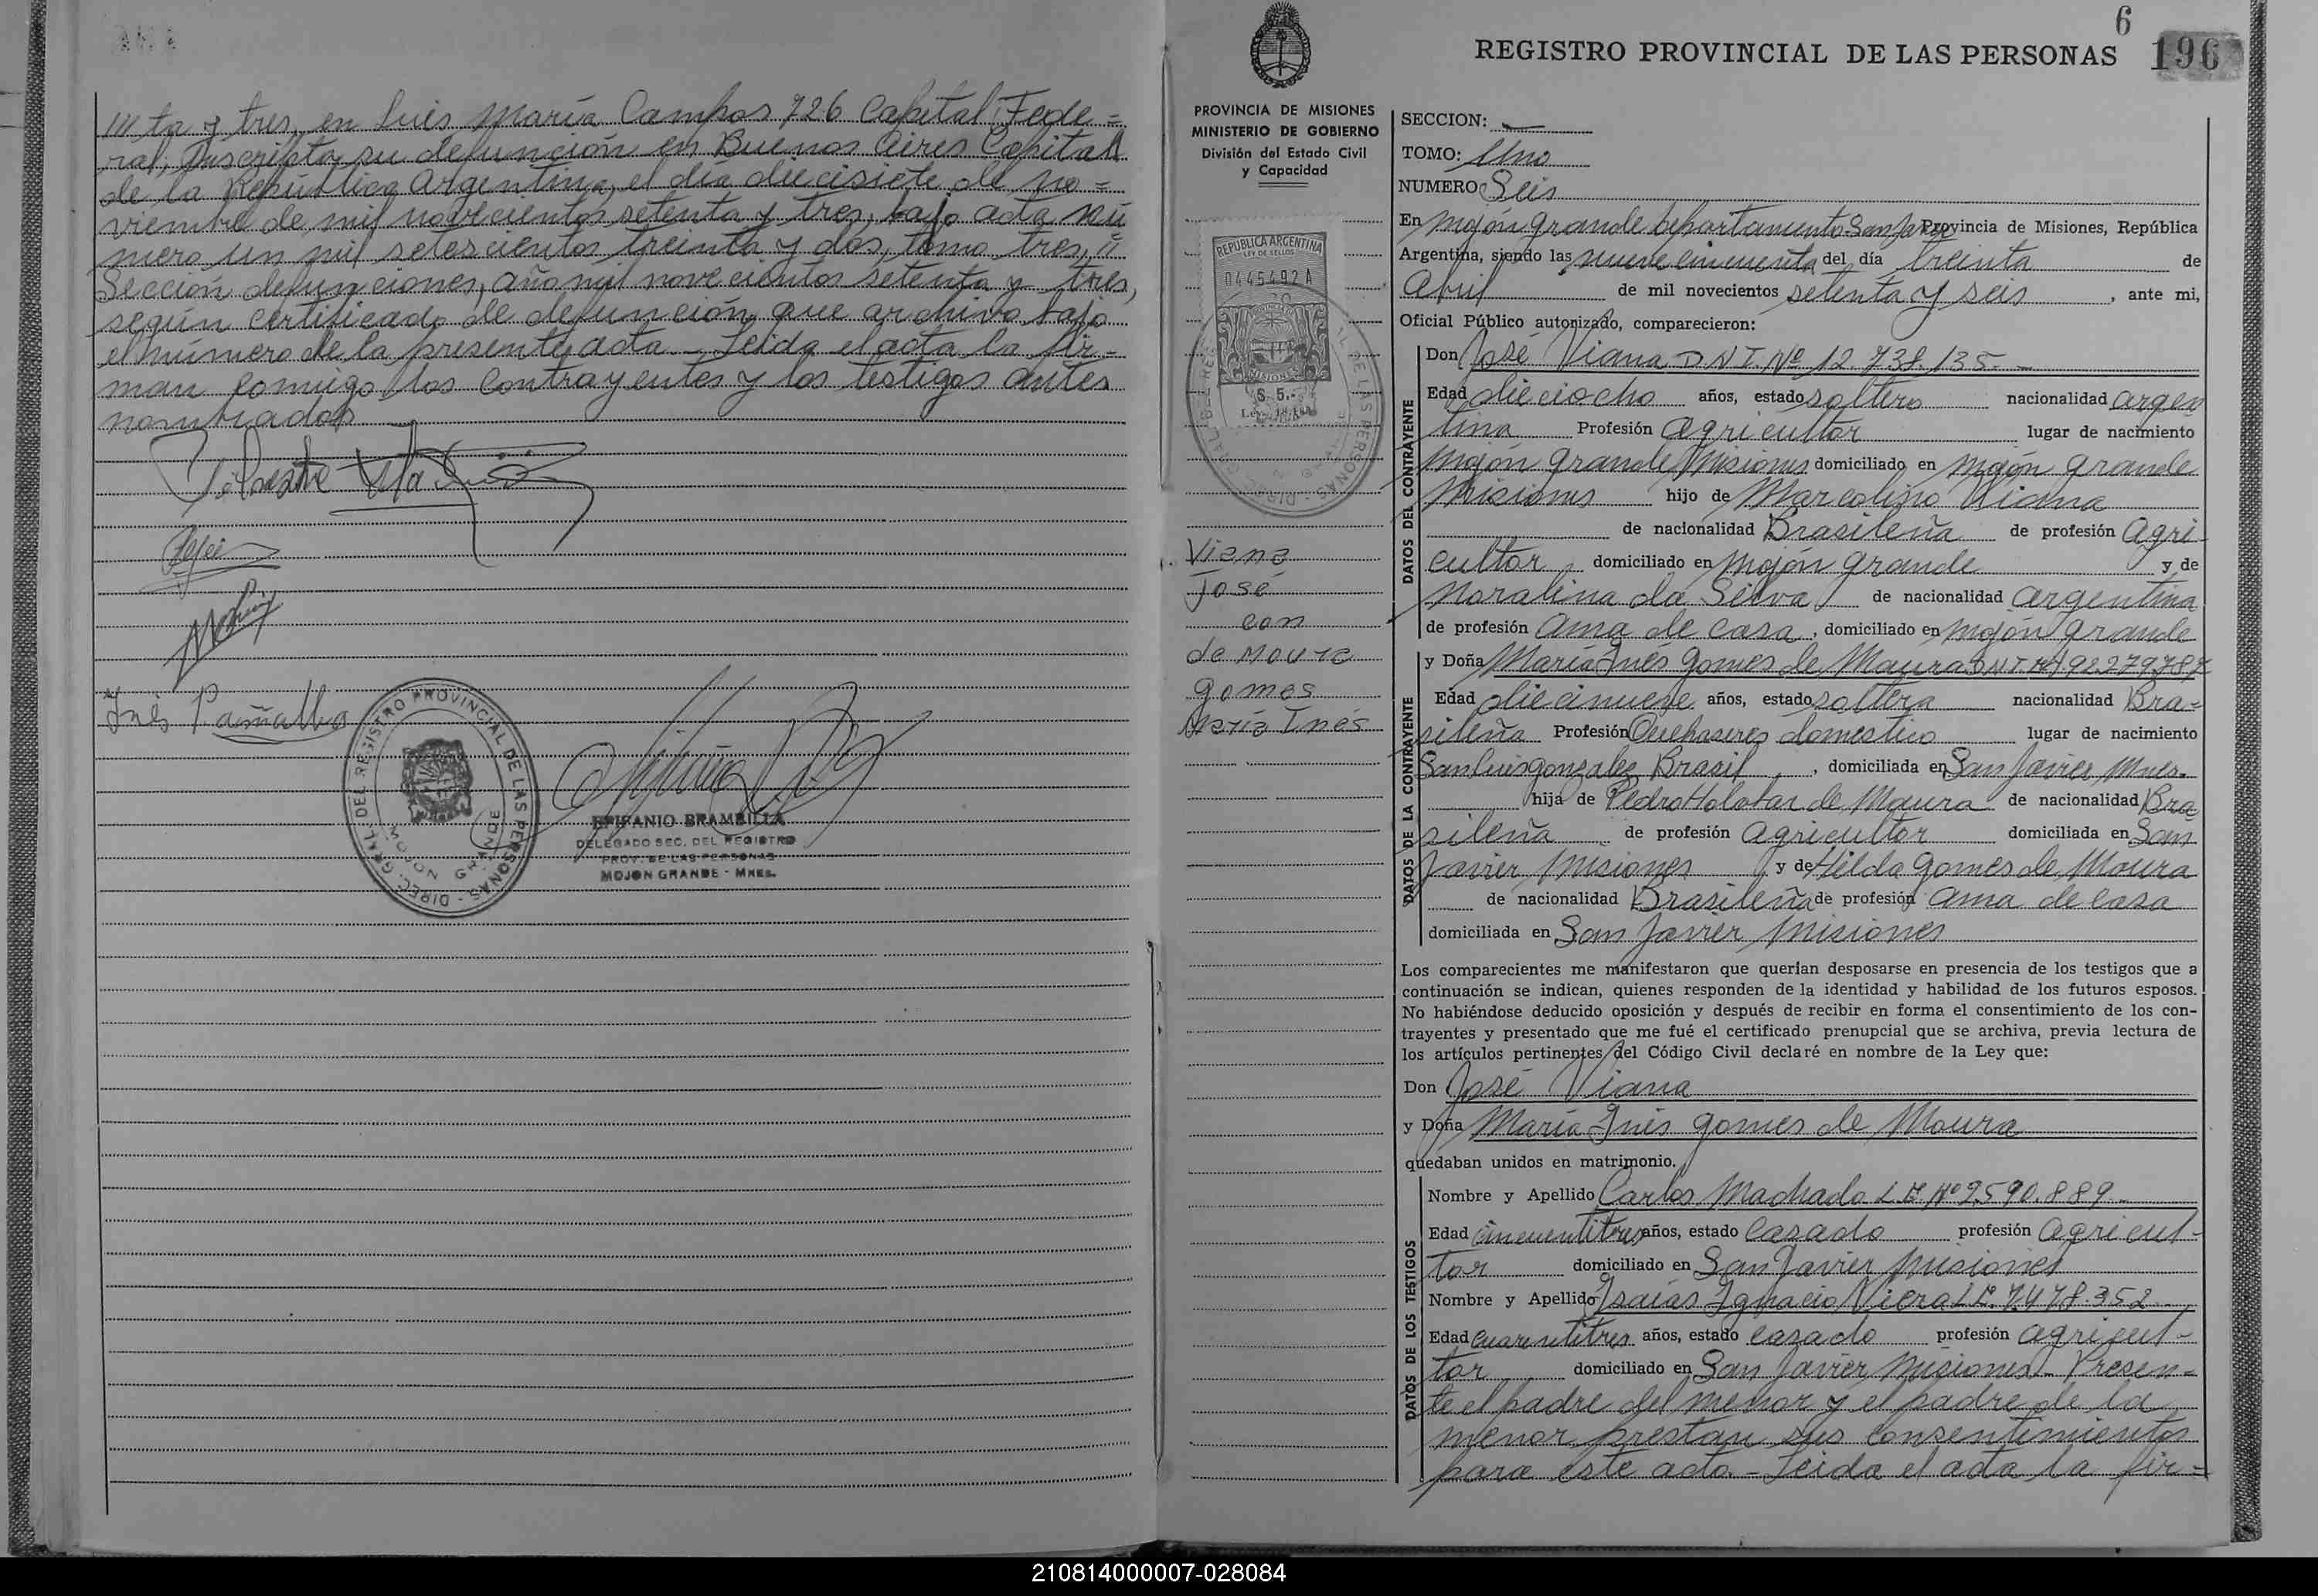 /// ta y tres, en Luis María Campos 726 Capital Fede=
ral, Inscripta su defunción en Buenos Aires Capital
de la República Argentina, el día diecisiete de no=
viembre de mil novecientos setenta y tres, bajo acta nú
mero un mil setescientos treinta y dos, tomo tres, "
Sección defunciones, año mil novecientos setenta y tres,
según certificado de defunción que archivo bajo
el número de la presente acta - Leida el acta la fir=
man conmigo los contrayentes y los testigos antes
nombrados
Inés P. 
REGISTRO PROVINCIAL DE LAS PERSONAS - DIREC. GRAL. DEL
MOJON GRANDE
EPIFANIO BRAMBILLA
DELEGADO SEC. DEL REGISTRO
PROV. DE LAS PERSONAS
MOJON GRANDE - MNES.
6
REGISTRO PROVINCIAL DE LAS PERSONAS 196
PROVINCIA DE MISIONES
MINISTERIO DE GOBIERNO
División del Estado Civil
y Capacidad
REPUBLICA ARGENTINA
LEY DE SELLOS
0445492 A
MISIONES
$ 5.-
Viana
José
con
de Moura
gomes
María Inés
SECCION: —
TOMO: Uno
NUMERO Seis
En Mojón grande departamento San Ja Provincia de Misiones, República
Argentina, siendo las nueve cincuenta del día treinta de
Abril de mil novecientos setenta y seis, ante mi,
Oficial Público autorizado, comparecieron:
DATOS DEL CONTRAYENTE
Don José Viana D.N.I. Nº 12.738.135.-
Edad dieciocho años, estado soltero nacionalidad argen
tina Profesión agricultor lugar de nacimiento
Mojón grande Misiones domiciliado en Mojón grande
Misiones hijo de Marcolino Viana
de nacionalidad Brasileña de profesión Agri-
cultor domiciliado en Mojón grande y de
Noralina da Silva de nacionalidad argentina
de profesión ama de casa, domiciliado en Mojón grande
DATOS DE LA CONTRAYENTE
y Doña María Inés gomes de Moura D.N.I. Nº 92279787
Edad diecinueve años, estado soltera nacionalidad Bra-
sileña Profesión Quehaseres domestico lugar de nacimiento
San Luis gonzalez Brasil, domiciliada en San Javier Mnes.
hija de Pedro de Moura de nacionalidad Bra
sileña de profesión agricultor domiciliada en San
Javier Misiones y de Hilda gomes de Moura
de nacionalidad Brasileña de profesión ama de casa
domiciliada en San Javier Misiones
Los comparecientes me manifestaron que querían desposarse en presencia de los testigos que a
continuación se indican, quienes responden de la identidad y habilidad de los futuros esposos.
No habiéndose deducido oposición y después de recibir en forma el consentimiento de los con-
trayentes y presentado que me fué el certificado prenupcial que se archiva, previa lectura de
los artículos pertinentes del Código Civil declaré en nombre de la Ley que:
Don José Viana
y Doña María Inés gomes de Moura
quedaban unidos en matrimonio.
DATOS DE LOS TESTIGOS
Nombre y Apellido Carlos Machado L.E. Nº 7.590.889.-
Edad cincuentitres años, estado casado profesión agricul-
tor domiciliado en San Javier Misiones
Nombre y Apellido Isaías Ignacio Viera L.E. 7.478.352
Edad cuarentitres años, estado casado profesión agricul-
tor domiciliado en San Javier Misiones - Presen-
te el padre del menor y el padre de la
menor prestan sus consentimientos
para este acto - Leida el acta la fir=
210814000007-028084